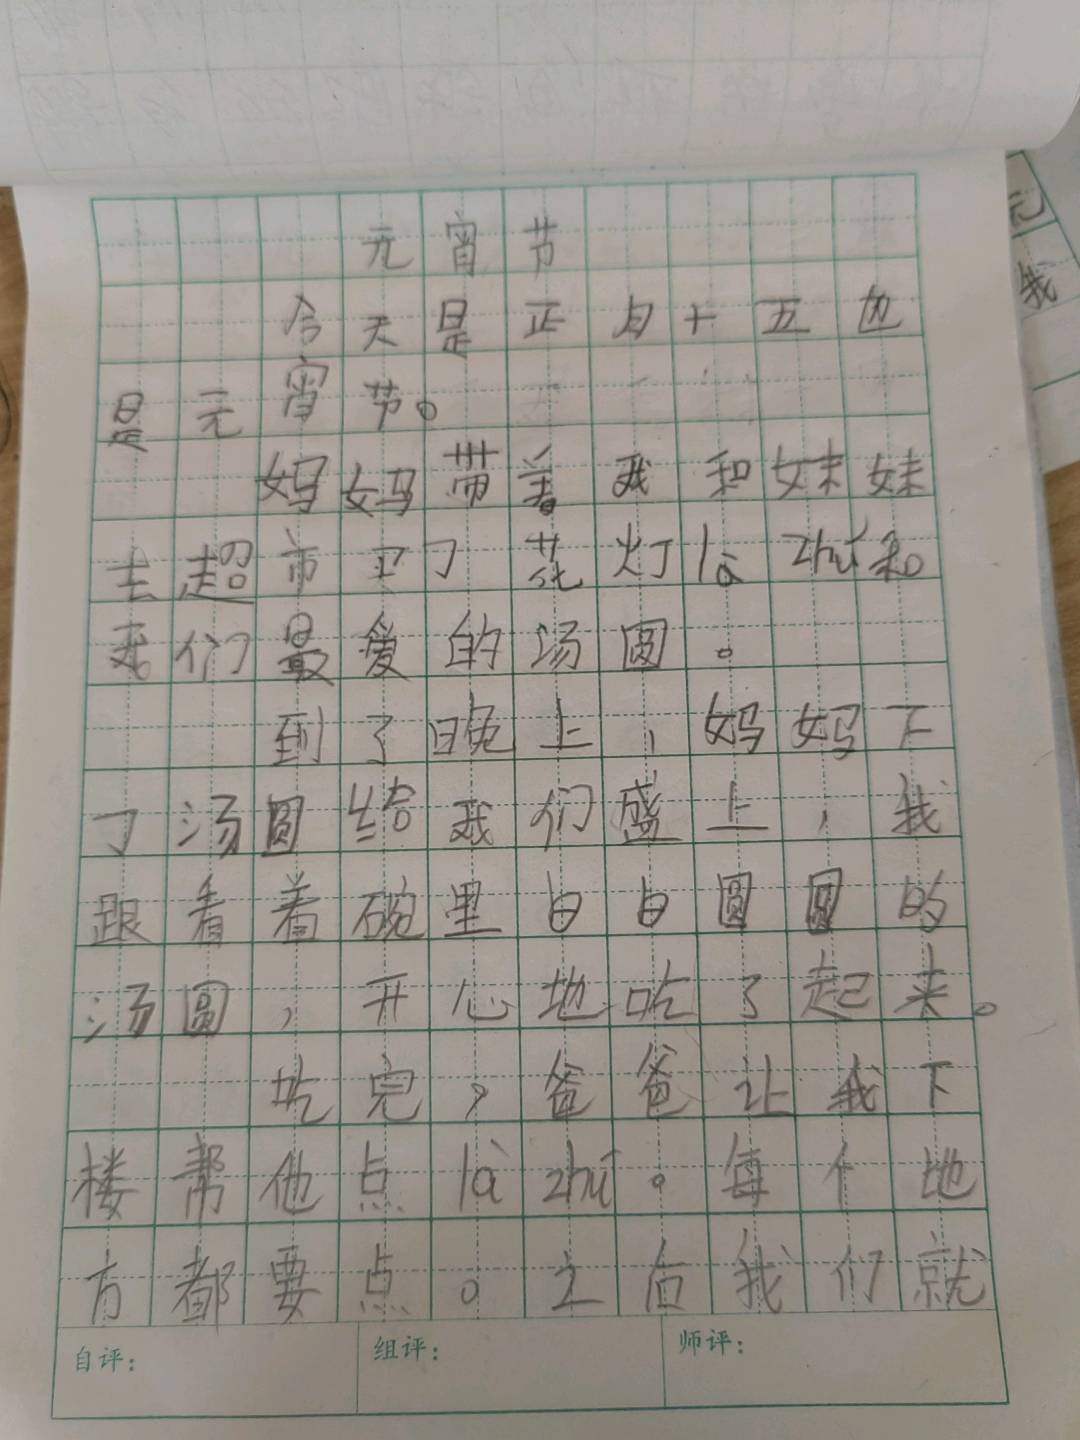 元宵节
今天是正月十五也
是元宵节。
妈妈带着我和妹妹
去超市买了花灯là zhú和
我们最爱的汤圆。
到了晚上，妈妈下
了汤圆给我们盛上，我
跟看着碗里白白圆圆的
汤圆，开心地吃了起来。
吃完，爸爸让我下
楼帮他点là zhú。每个地
方都要点。之后我们就
自评： 组评： 师评：
元
我